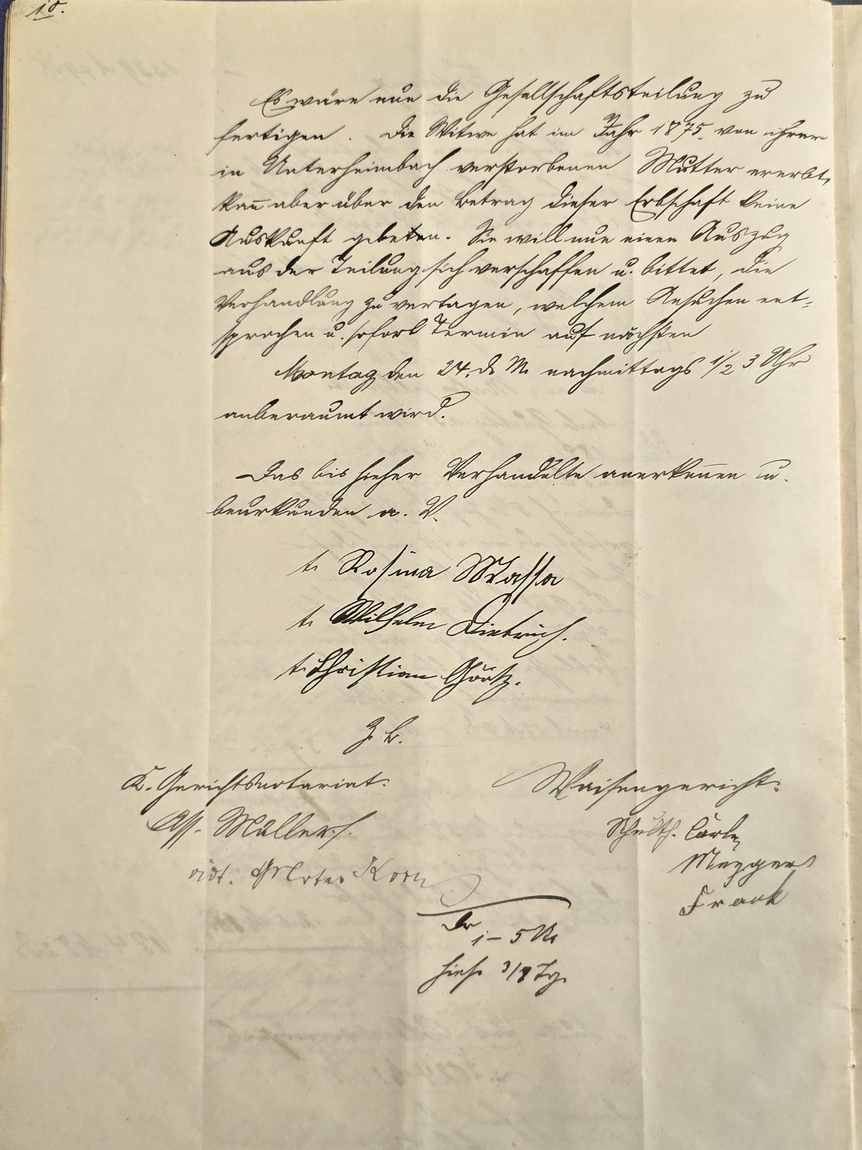 10.
Es wäre nun die Gesellschaftsteilung zu
fertigen. Die Witwe hat im Jahr 1875 von ihrer
in Unterheimbach verstorbenen Mutter ererbt,
kan̄ aber über den Betrag dieser Erbschaft keine
Auskunft geben. Sie will nun einen Auszug
aus der Teilung sich verschaffen u. bittet, die
Verhandlung zu vertagen, welchem Ansuchen ent-
sprochen u. sofort Termin auf nächsten
Montag den 24. d. M. nachmittags 1/2 3 Uhr
anberaumt wird.
Das bis hieher Verhandelte anerkennen u.
beurkunden a. V.
t. Rosina Massa
t. Wilhelm Dietrich.
t. Christian Görtz.
Z. B.
K. Gerichtsnotariat:
Ass. Müller
vidt. Korn
Waisengericht:
Schulth. Carle
Mezger
Frank
1 – 5 U.
hies. 3/8 Tg.